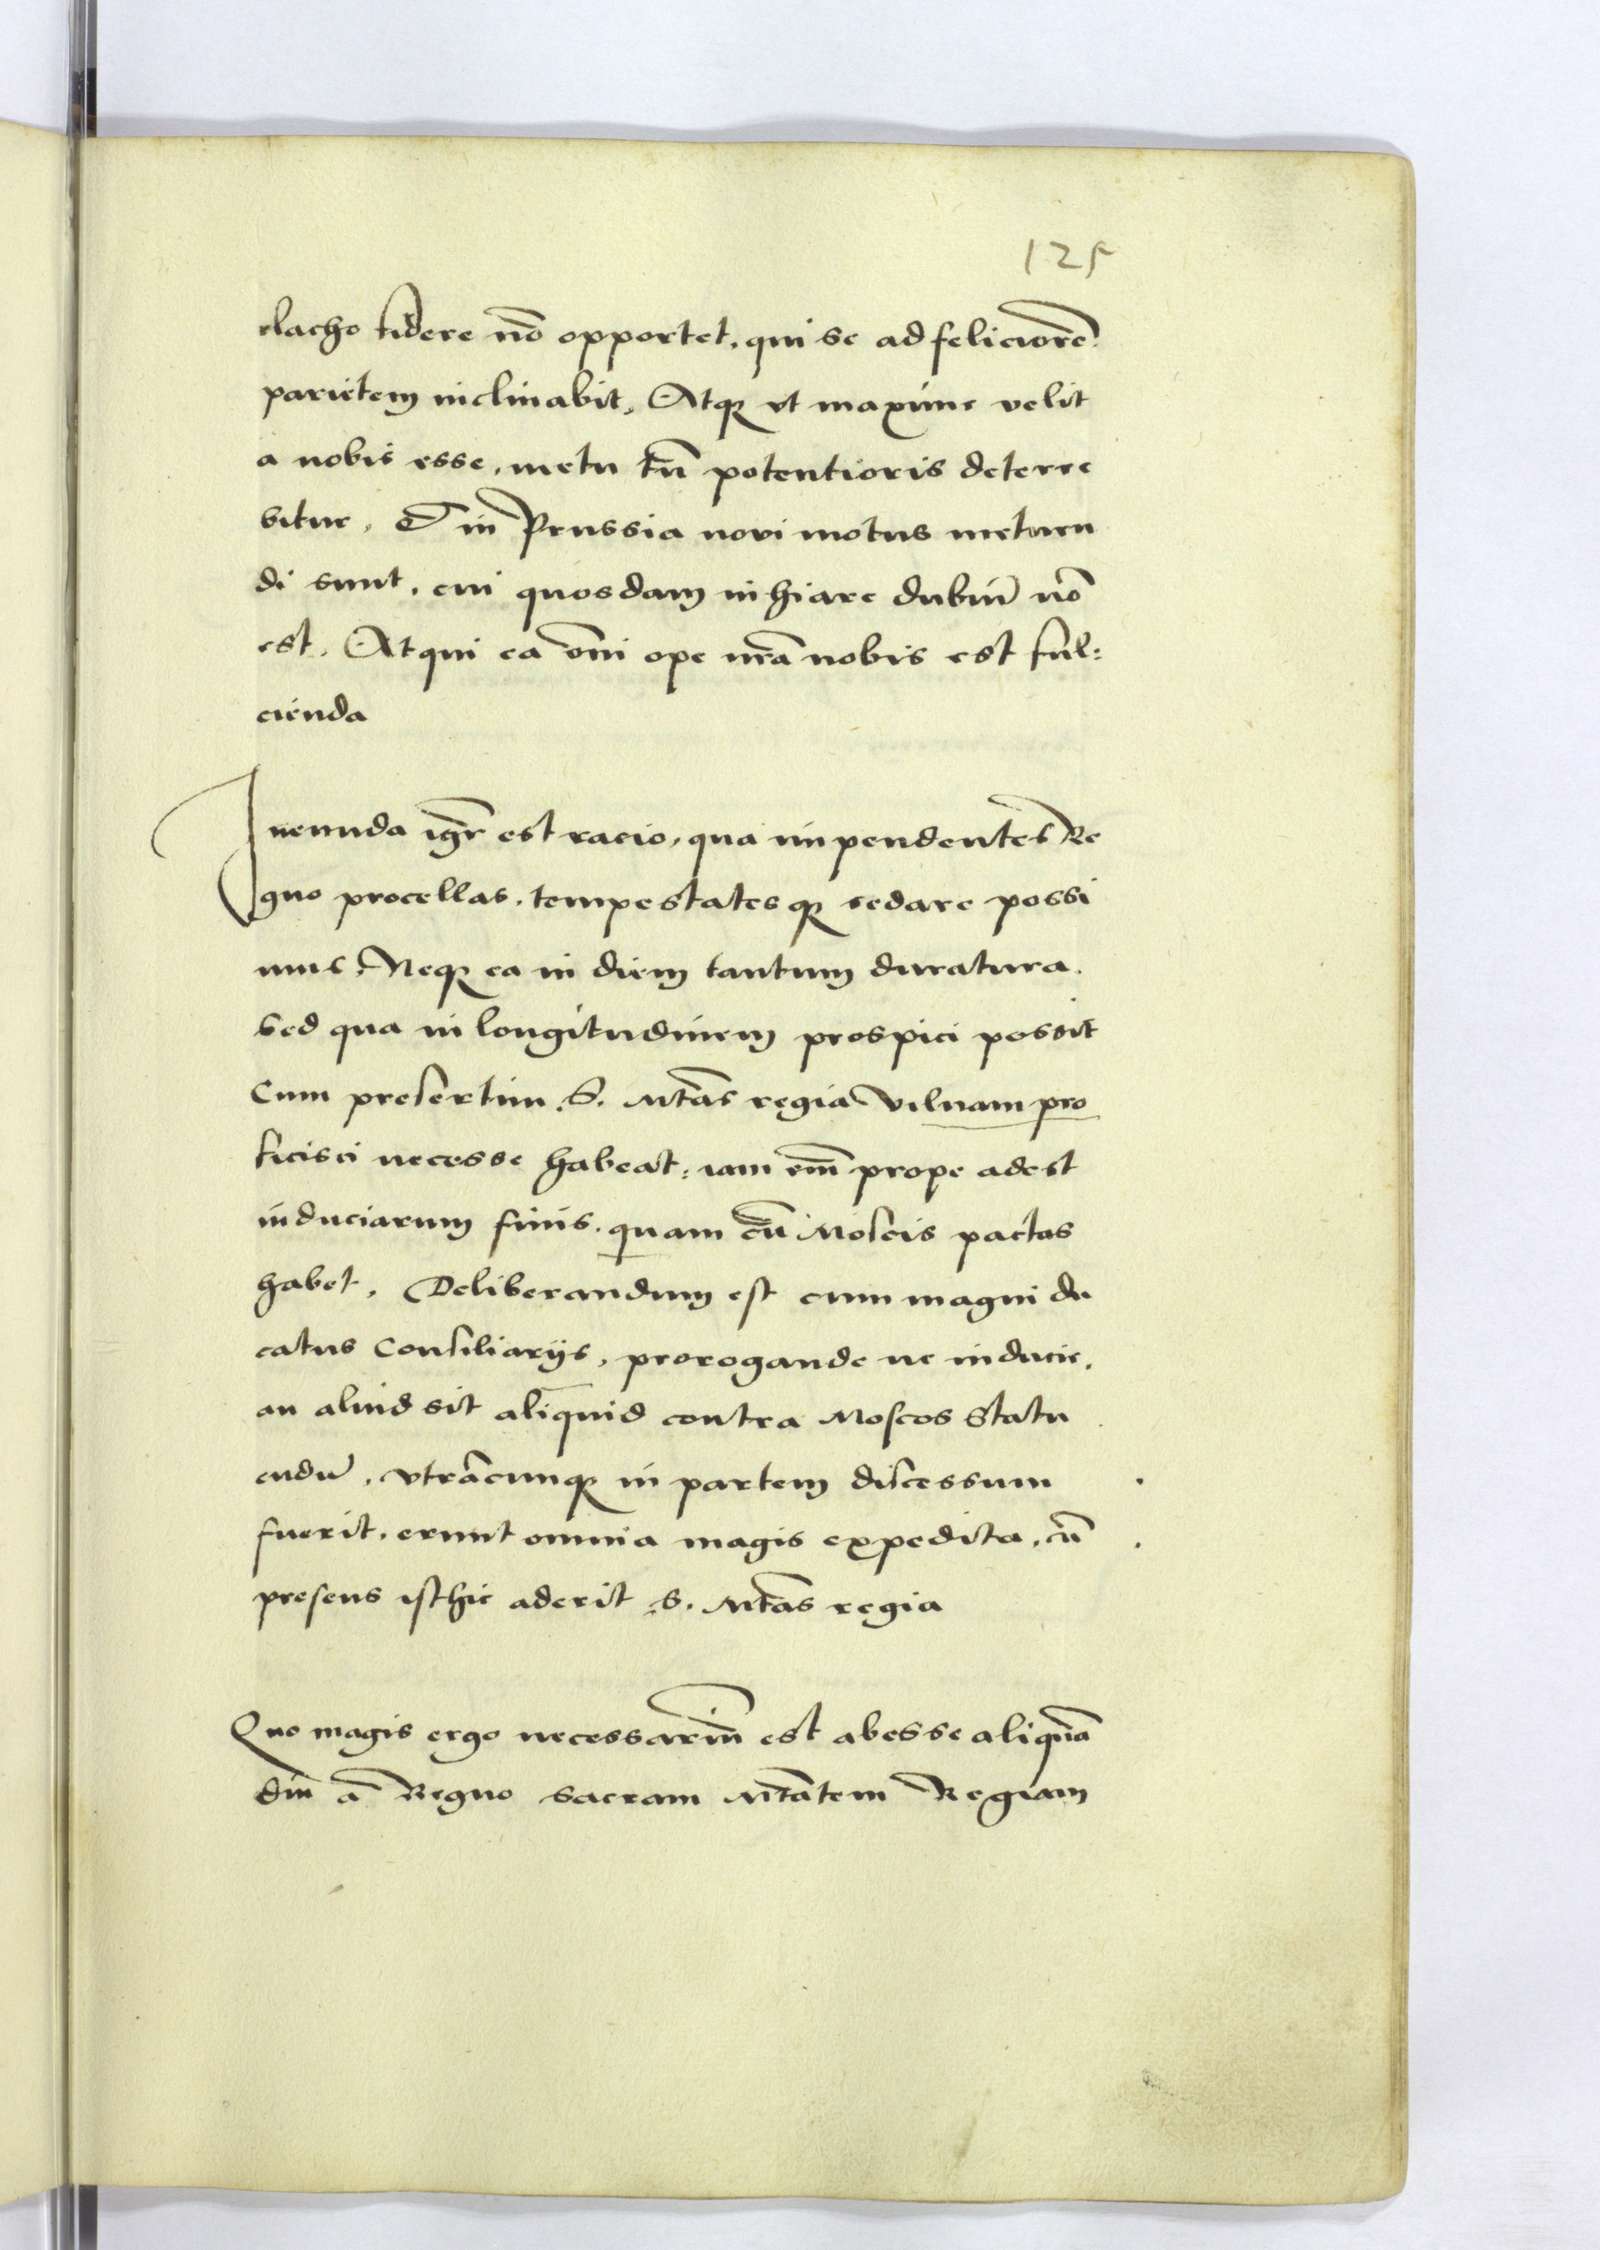 125
clacho fidere nō opportet, qui se ad feliciorē
parietem inclinabit, Atq; vt maxime velit
a nobis esse, metu tn̄ potentioris deterre
bitur, Et in Prussia novi motus metuen
di sunt, cui quosdam inhiare dubiū nō
est. Atqui ea om̄i ope nr̄a nobis est ful:
cienda
Inenunda igr̄ est racio, qua impendentes Re
gno procellas, tempestatesq; sedare possi
mus, Neq; ea in diem tantum duratura.
Sed qua in longitudinem prospici possit
Cum presertim S. Mtas regia Vilnam pro
ficisci necesse habeat, iam em̄ prope adest
induciarum finis, quam cū Moscis pactas
habet, Deliberandum est cum magni du
catus Consiliarijs, prorogande ne inducie,
an aliud sit aliquid contra Moscos Statu
endū, vtrācunq; in partem discessum
fuerit, erunt omnia magis expedita, cū
presens isthic aderit S. Mtas regia
Quo magis ergo necessariū est abesse aliquā
diu a Regno sacram Mtatem Regiam